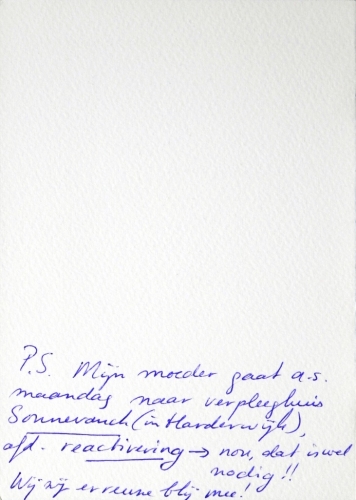 P.S. Mijn moeder gaat a.s.
maandag naar verpleeghuis
Sonnevanck (in Harderwijk),
afd. reactivering → nou, dat is wel
nodig!!
Wij zij er reuze blij mee!